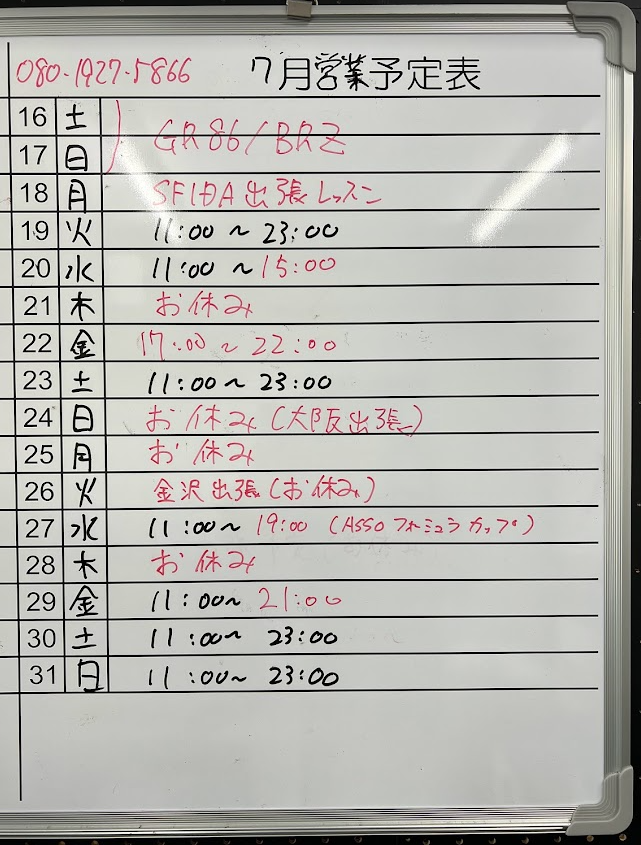 080-1927-5866 7月営業予定表
16 土
GR86/BRZ
17 日
18 月 SFIDA出張レッスン
19 火 11:00~23:00
20 水 11:00~15:00
21 木 お休み
22 金 17:00~22:00
23 土 11:00~23:00
24 日 お休み(大阪出張)
25 月 お休み
26 火 金沢出張(お休み)
27 水 11:00~19:00 (ASSOフォーミュラカップ)
28 木 お休み
29 金 11:00~21:00
30 土 11:00~23:00
31 日 11:00~23:00